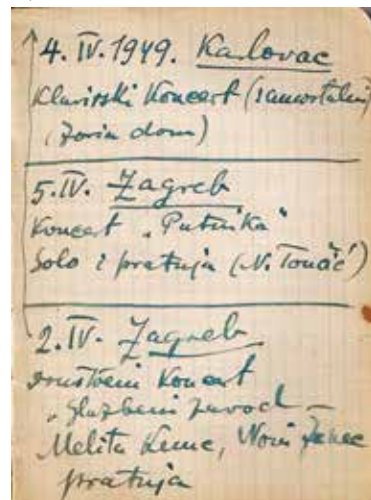 4. IV. 1949. Karlovac
Klavirski Koncert (samostalni)
(Zorin dom)
5. IV. Zagreb
Koncert „Putnika“
Solo i pratnja (N. Tončić)
2. IV. Zagreb
Društveni Koncert
„Glazbeni zavod –
Melita Kunc, Novi
pratnja